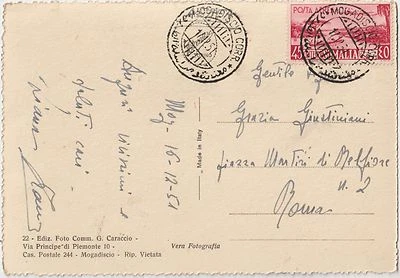 MOGADISCIO CORR.
POSTA AEREA
45
SOMALIA
80
Gentile
Grazia Giustiniani
piazza Martiri di Belfiore
n. 2
Roma
Mog 16-12-51
Auguri vivissimi e
saluti cari -
Made in Italy
22 - Ediz. Foto Comm. G. Caraccio -
Via Principe di Piemonte 10 -
Cas. Postale 244 - Mogadiscio - Rip. Vietata
Vera Fotografia